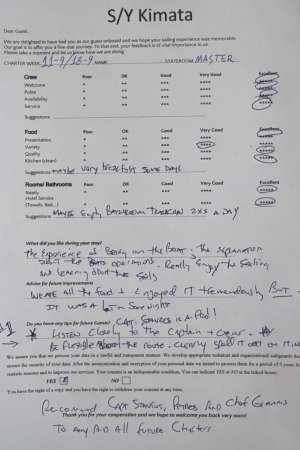 S/Y Kimata
Dear Guest,
We are delighted to have had you as our guest onboard and we hope your sailing experience was memorable.
Our goal is to offer you a fine day journey. To that end, your feedback is of vital importance to us.
Please take a moment and let us know how we are doing.
CHARTER WEEK: 11-9/18-9 NAME STATEROOM MASTER
Crew Poor OK Good Very Good Excellent
Welcome * ** *** **** *****
Polite * ** *** **** *****
Availability * ** *** **** *****
Service * ** *** **** *****
Suggestions
Food Poor OK Good Very Good Excellent
Presentation * ** *** **** *****
Variety * ** *** **** *****
Quality * ** *** **** *****
Kitchen (clean) * ** *** **** *****
Suggestions maybe vary breakfast some days
Rooms/ Bathrooms Poor OK Good Very Good Excellent
Neatly * ** *** **** *****
Hotel Service * ** *** **** *****
(Towels, Bed...)
Suggestions MAYBE Empty BATHROOM TRASHCAN 2xs a DAY
What did you like during your stay?
The experience of Being on the Boat. The explanation
about the operations. Really Enjoy the Sailing
and learning about the sails
Advice for future improvements
WE ATE ALL the food & Enjoyed IT tremendously BUT
IT WAS A
Do you have any tips for future Guests? CAPT. STAVROS is A Pod!
LISTEN Closely to the Captain + Crew.
Be flexible about the route.
We assure you that we process your data in a lawful and transparent manner. We develop appropriate technical and organizational safeguards that
ensure the security of your data. After the anonymization and encryption of your personal data we intend to process them for a period of 5 years for
statistic reasons and to improve our services. Your consent is an indispensable condition. You can indicate YES or NO at the linked boxes:
YES NO
You have the right of a copy and you have the right to withdraw your consent at any time.
Recommend CAPT STAVROS, And Chef Giannis
Thank you for your cooperation and we hope to welcome you back very soon!
To Any And All Future Charters